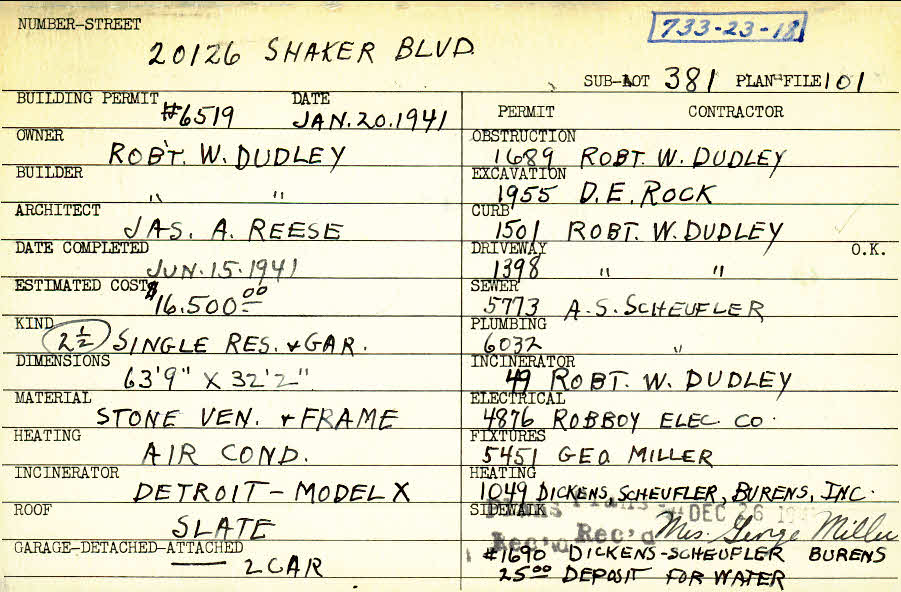 NUMBER-STREET
733-23-18
20126 SHAKER BLVD.
SUB-LOT 381 PLAN-FILE 101
BUILDING PERMIT DATE
#6519 JAN. 20. 1941
OWNER
ROBT. W. DUDLEY
BUILDER
" "
ARCHITECT
JAS. A. REESE
DATE COMPLETED
JUN. 15. 1941
ESTIMATED COST
$16.500.00
KIND
2 1/2 SINGLE RES. + GAR.
DIMENSIONS
63'9" X 32'2"
MATERIAL
STONE VEN. + FRAME
HEATING
AIR COND.
INCINERATOR
DETROIT - MODEL X
ROOF
SLATE
GARAGE-DETACHED-ATTACHED
2 CAR
PERMIT CONTRACTOR
OBSTRUCTION
1689 ROBT. W. DUDLEY
EXCAVATION
1955 D. E. ROCK
CURB
1501 ROBT. W. DUDLEY
DRIVEWAY O.K.
1398 " "
SEWER
5773 A. S. SCHEUFLER
PLUMBING
6032 "
INCINERATOR
49 ROBT. W. DUDLEY
ELECTRICAL
4876 ROBBOY ELEC. CO.
FIXTURES
5451 GEO MILLER
HEATING
1049 DICKENS, SCHEUFLER, BURENS, INC.
SIDEWALK
Plans DEC 26
Rec'd Rec'd Mrs. George Miller
#1690 DICKENS-SCHEUFLER BURENS
25.00 DEPOSIT FOR WATER